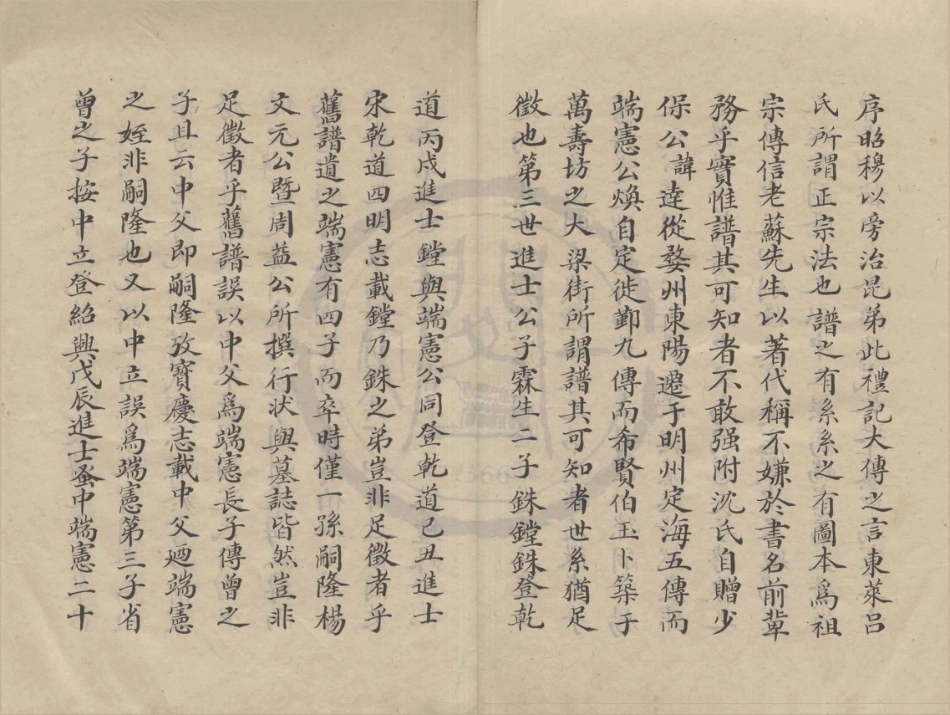 序昭穆以旁治昆弟此禮記大傳之言東萊呂
氏所謂正宗法也譜之有系系之有圖本爲祖
宗傳信老蘇先生以著代稱不嫌於書名前輩
務乎實惟譜其可知者不敢强附沈氏自贈少
保公諱逵從婺州東陽遷于明州定海五傳而
端憲公煥自定徙鄞九傳而希賢伯玉卜築于
萬壽坊之大梁街所謂譜其可知者世系猶足
徵也第三世進士公子霖生二子銖鏜銖登乾
道丙戌進士鏜與端憲公同登乾道己丑進士
宋乾道四明志載鏜乃銖之弟豈非足徵者乎
舊譜遺之端憲有四子而卒時僅一孫嗣隆楊
文元公暨周益公所撰行状與墓誌皆然豈非
足徵者乎舊譜誤以中父爲端憲長子傳曾之
子且云中父即嗣隆攷寳慶志載中父廼端憲
之姪非嗣隆也又以中立誤爲端憲第三子省
曾之子按中立登紹興戊辰進士蚤中端憲二十